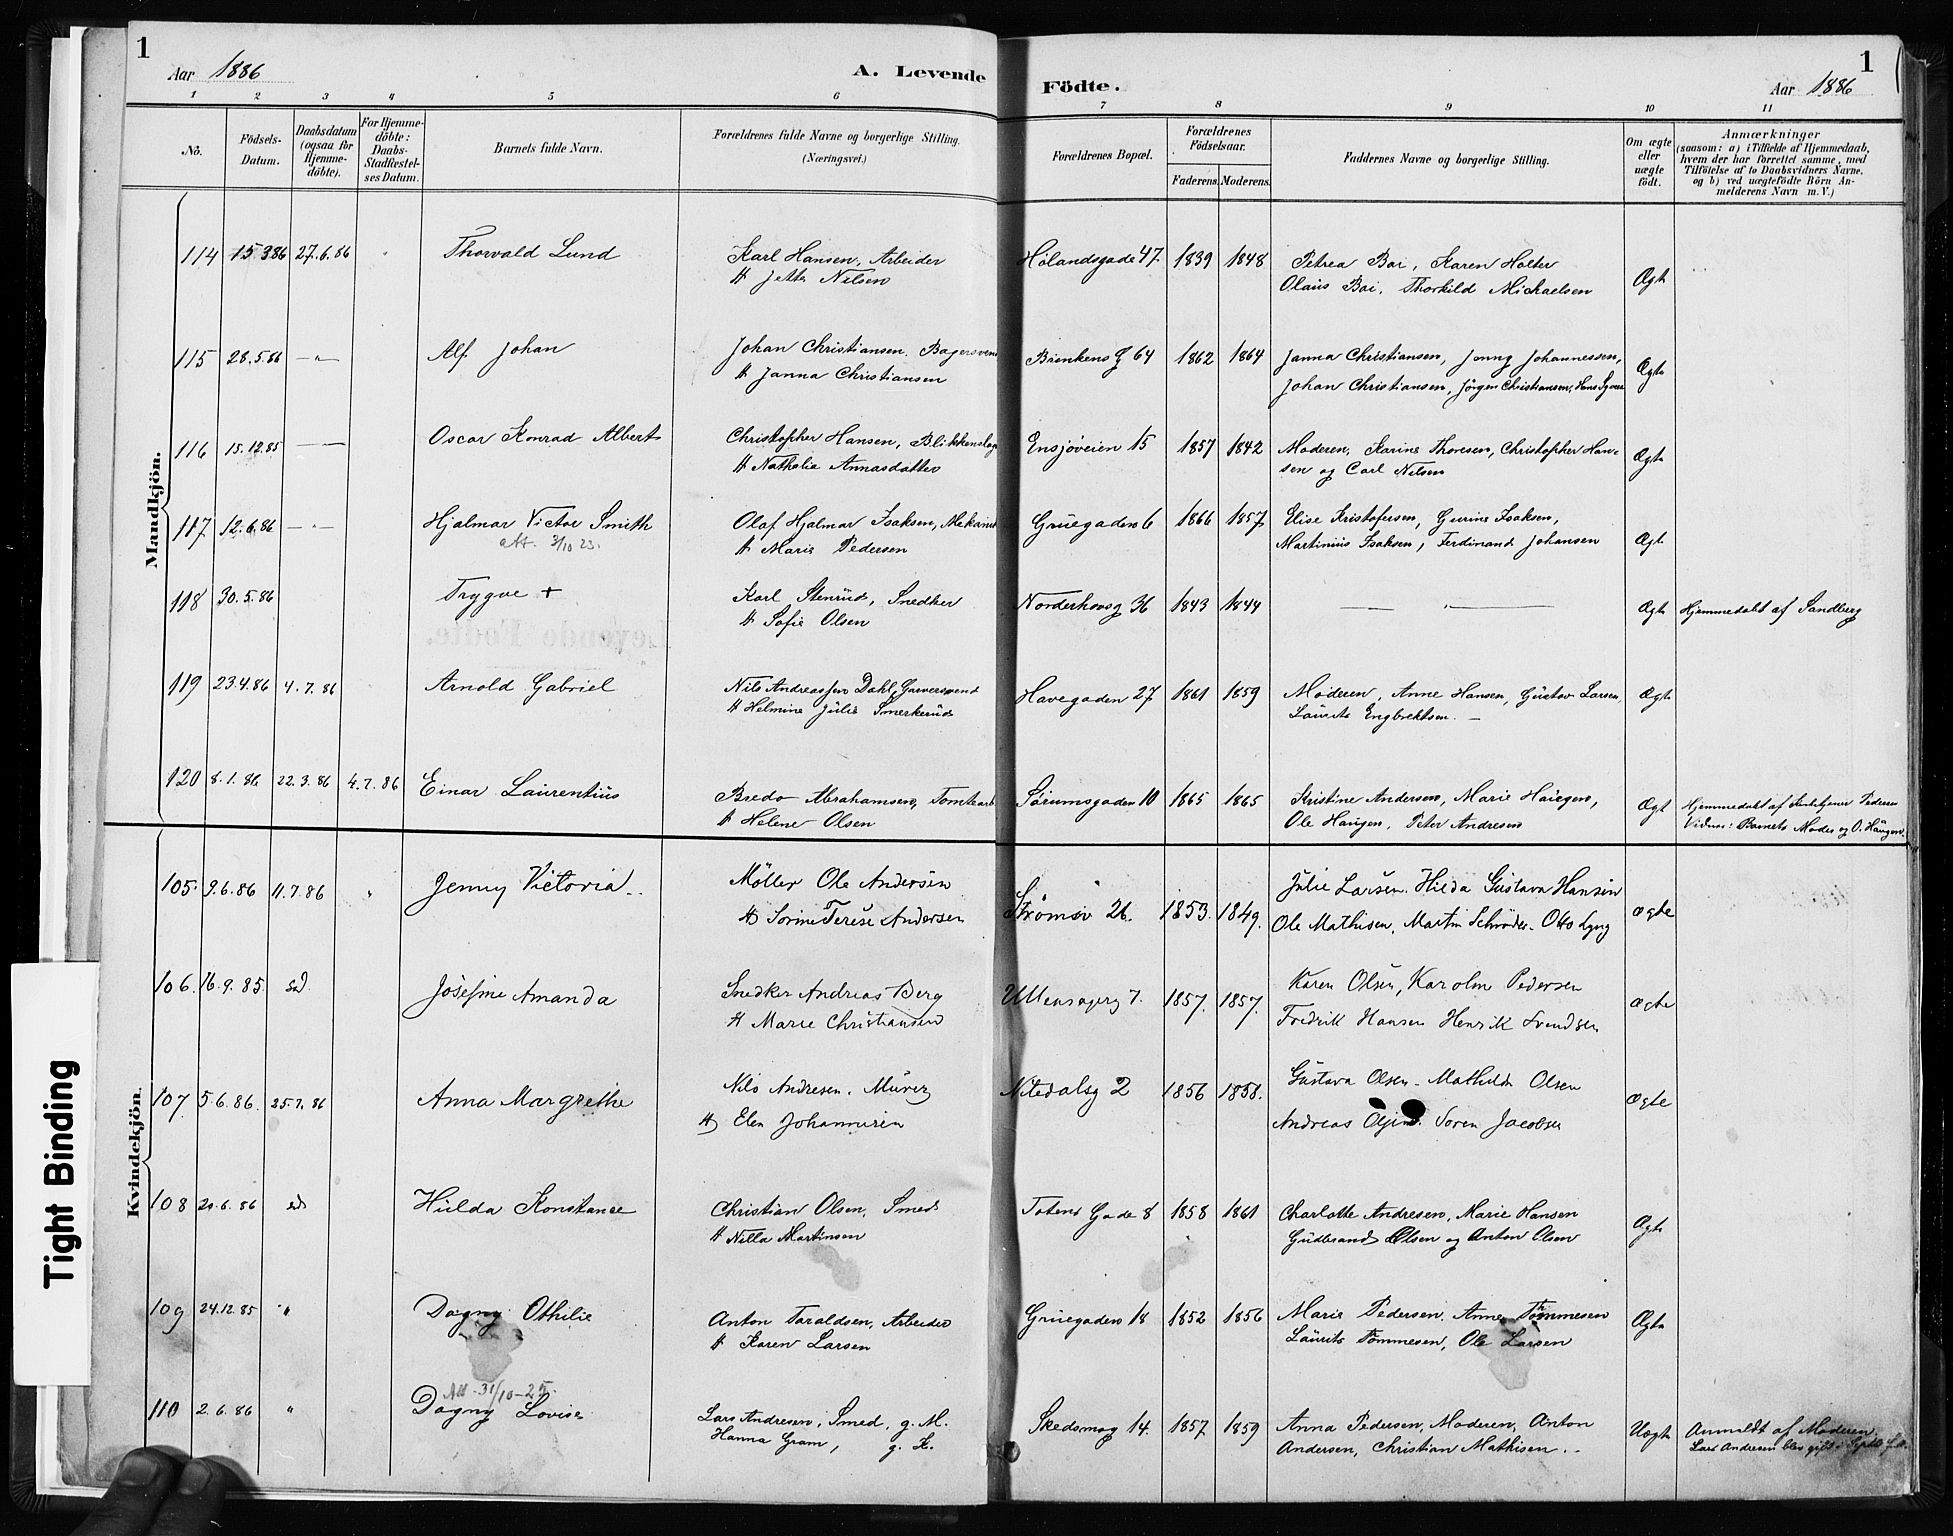 1
Aar 1886
A. Levende Födte.
Aar 1886
1
1 2 3 4 5 6 7 8 9 10 11
No.
Födsels-Datum.
Daabsdatum (ogsaa for Hjemmedöbte).
For Hjemmedöbte: Daabs-Stadfestelses Datum.
Barnets fulde Navn.
Forældrenes fulde Navne og borgerlige Stilling. (Næringsvei.)
Forældrenes Bopæl.
Forældrenes Födselsaar.
Faderens. Moderens.
Faddernes Navne og borgerlige Stilling.
Om ægte eller uægte födt.
Anmærkninger
(saasom: a) i Tilfælde af Hjemmedaab, hvem der har forrettet samme, med Tilföielse af to Daabsvidners Navne, og b) ved uægtefödte Börn Anmelderens Navn m. V.)
Mandkjön.
114 15.3.86 27.6.86 Thorvald Lund Karl Hansen, Arbeider Hølandsgade 47 1839 1848 Petrea Boi, Karen Holter Ægte
H Jette Nilsen Olaus Boi, Thorkild Michaelsen
115 28.5.86 — " — Alf Johan Johan Christiansen, Bagersvend Brinkens g 64 1862 1864 Janna Christiansen, Jenny Johannessen, Ægte
H Janna Christiansen Johan Christiansen, Jörgen Christiansen, Hans
116 15.12.85 — — Oscar Konrad Albert Christopher Hansen, Blikkenslag Ensjøveien 15 1857 1842 Moderen, Karine Thoresen, Christopher Han- Ægte
H Nathalie Annasdatter sen og Carl Nilsen
117 12.6.86 — " — Hjalmar Victor Smith Olaf Hjalmar Isaksen, Mekanik Gruegaden 6 1866 1857 Elise Kristofersen, Gurine Isaksen, Ægt.
att. 3/10 23. H Marie Pedersen Martinius Isaksen, Ferdinand Johansen
118 30.5.86 Trygve + Karl Stenrud, Snedker Norderhovsg 36 1843 1844 — " — Ægte Hjemmedøbt af Sandberg
H Sofie Olsen
119 23.4.86 4.7.86 Arnold Gabriel Nils Andreassen Dahl, Garversvend Havegaden 27 1861 1859 Moderen, Anne Hansen, Gustav Larsen, Ægte
H Helmine Julie Smerkerud Laurits Engbrektsen. —
120 8.1.86 22.3.86 4.7.86 Einar Laurentius Bredo Abrahamsen, Tomtearb Sørumsgaden 10 1865 1865 Kristine Andersen, Marie Haugen, Ægt Hjemmedøbt af Pedersen
H Helene Olsen Ole Haugen, Peter Andresen Vidner: Barnets Moder og O. Haugen.
Kvindekjön.
105. 9.6.86 11.7.86 " Jenny Victoria.. Möller Ole Andersen Strömsv 26. 1853. 1849. Julie Larsen. Hilda Gustava Hansen ægte
H Sorine Terese Andersen Ole Mathisen, Martin Schrøder. Otto Lyng
106. 16.9.85. sd. Josefine Amanda Snedker Andreas Berg Ullensagerg 7. 1857. 1857. Karen Olsen, Karoline Pedersen ægte
H Marie Christiansen Fredrik Hansen Henrik Svendsen
107 5.6.86. 25.7.86 Anna Margrethe Nils Andresen. Murer Nitedalsg 2 1856 1858. Gustava Olsen. Mathilde Olsen ægte
H Elen Johannesen Andreas Soren Jacobsen
108 20.6.86 sd Hulda Konstanse Christian Olsen, Smed Totens Gade 8 1858 1861 Charlotte Andresen, Marie Hansen Ægte
H Nilla Martinsen Gudbrand Olsen og Anton Olsen
109 24.12.85 " Dagny Othilie Anton Taraldsen, Arbeider Gruegaden 18 1852 1856 Marie Pedersen, Anne Tömmesen Ægte
H Karen Larsen Laurits Tömmesen, Ole Larsen
Att-31/10-25.
110 2.6.86 " Dagny Lovise Lars Andresen, Smed, g. M. Skedsmog 14. 1857 1859 Anna Pedersen, Moderen, Anton Uægte Anmeldt af Moderen.
Hanna Gram, g. K. Andersen, Christian Mathisen.. Lars Andresen blev gift i Septb
Tight Binding